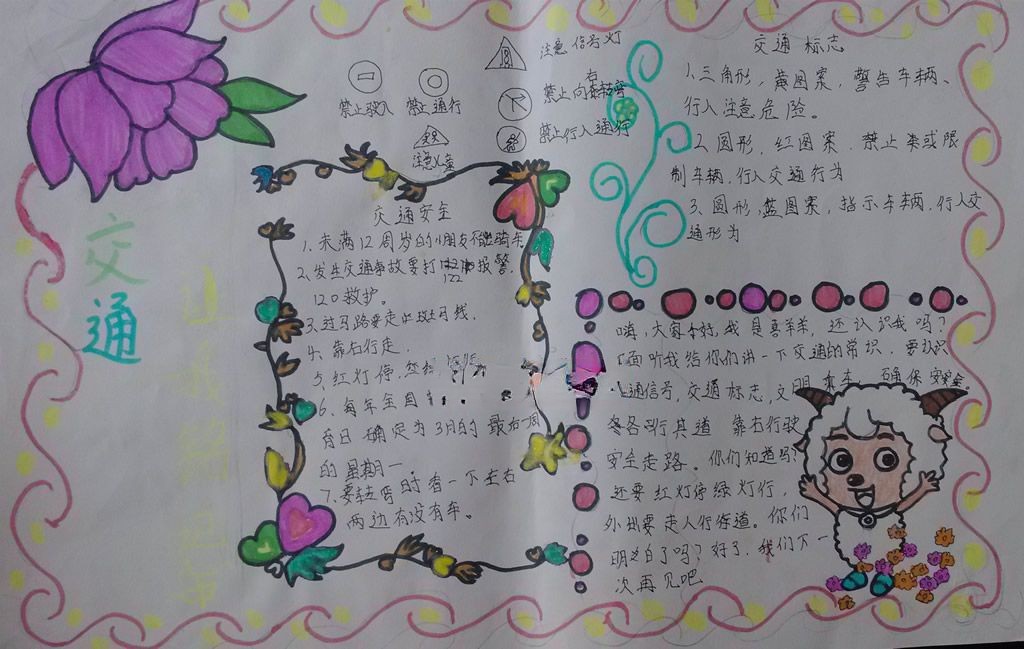 交通
注意信号灯
禁止驶入
禁止通行
禁止向右转弯
禁止行人通行
注意儿童
交通标志
1.三角形，黄图案，警告车辆、
行人注意危险。
2.圆形，红图案，禁止类或限
制车辆，行人交通行为
3.圆形，蓝图案，指示车辆，行人交
通形为
交通安全
1.未满12周岁的小朋友不能骑车
2.发生交通事故要打122报警，
120救护。
3.过马路要走斑马线，
4.靠右行走，
5.红灯停，
6.每年全国
育日确定为3月的最后一周
的星期一。
7.要转弯时看一下左右
两边有没有车。
嗨，大家好，我是喜羊羊，还认识我吗？
下面听我给你们讲一下交通的常识，要认识
交通信号，交通标志，文明乘车，确保安全。
各行其道 靠右行驶
安全走路。你们知道吗？
还要红灯停绿灯行，
外出要走人行街道。你们
明白了吗？好了，我们下一
次再见吧